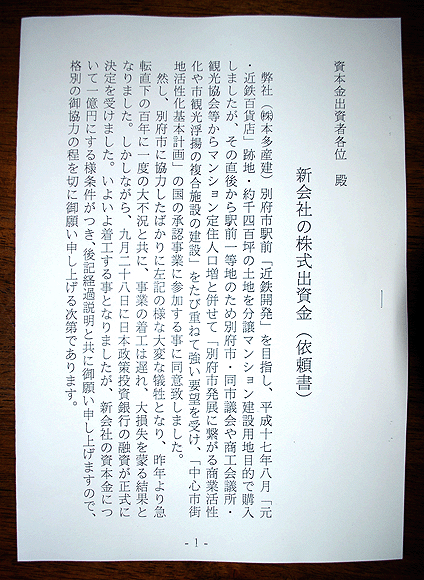 資本金出資者各位　殿
新会社の株式出資金（依頼書）
弊社（㈱本多産建）別府市駅前「近鉄開発」を目指し、平成十七年八月「元
・近鉄百貨店」跡地・約千四百坪の土地を分譲マンション建設用地目的で購入
しましたが、その直後から駅前一等地のため別府市・同市議会や商工会議所・
観光協会等からマンション定住人口増と併せて「別府市発展に繋がる商業活性
化や市観光浮揚の複合施設の建設」をたび重ねて強い要望を受け、「中心市街
地活性化基本計画」の国の承認事業に参加する事に同意致しました。
然し、別府市に協力したばかりに左記の様な大変な犠牲となり、昨年より急
転直下の百年に一度の大不況と共に、事業の着工は遅れ、大損失を蒙る結果と
なりました。しかしながら、九月二十八日に日本政策投資銀行の融資が正式に
決定を受けました。いよいよ着工する事となりましたが、新会社の資本金につ
いて一億円にする様条件がつき、後記経過説明と共に御願い申し上げますので、
格別の御協力の程を切に御願い申し上げる次第であります。
- 1 -